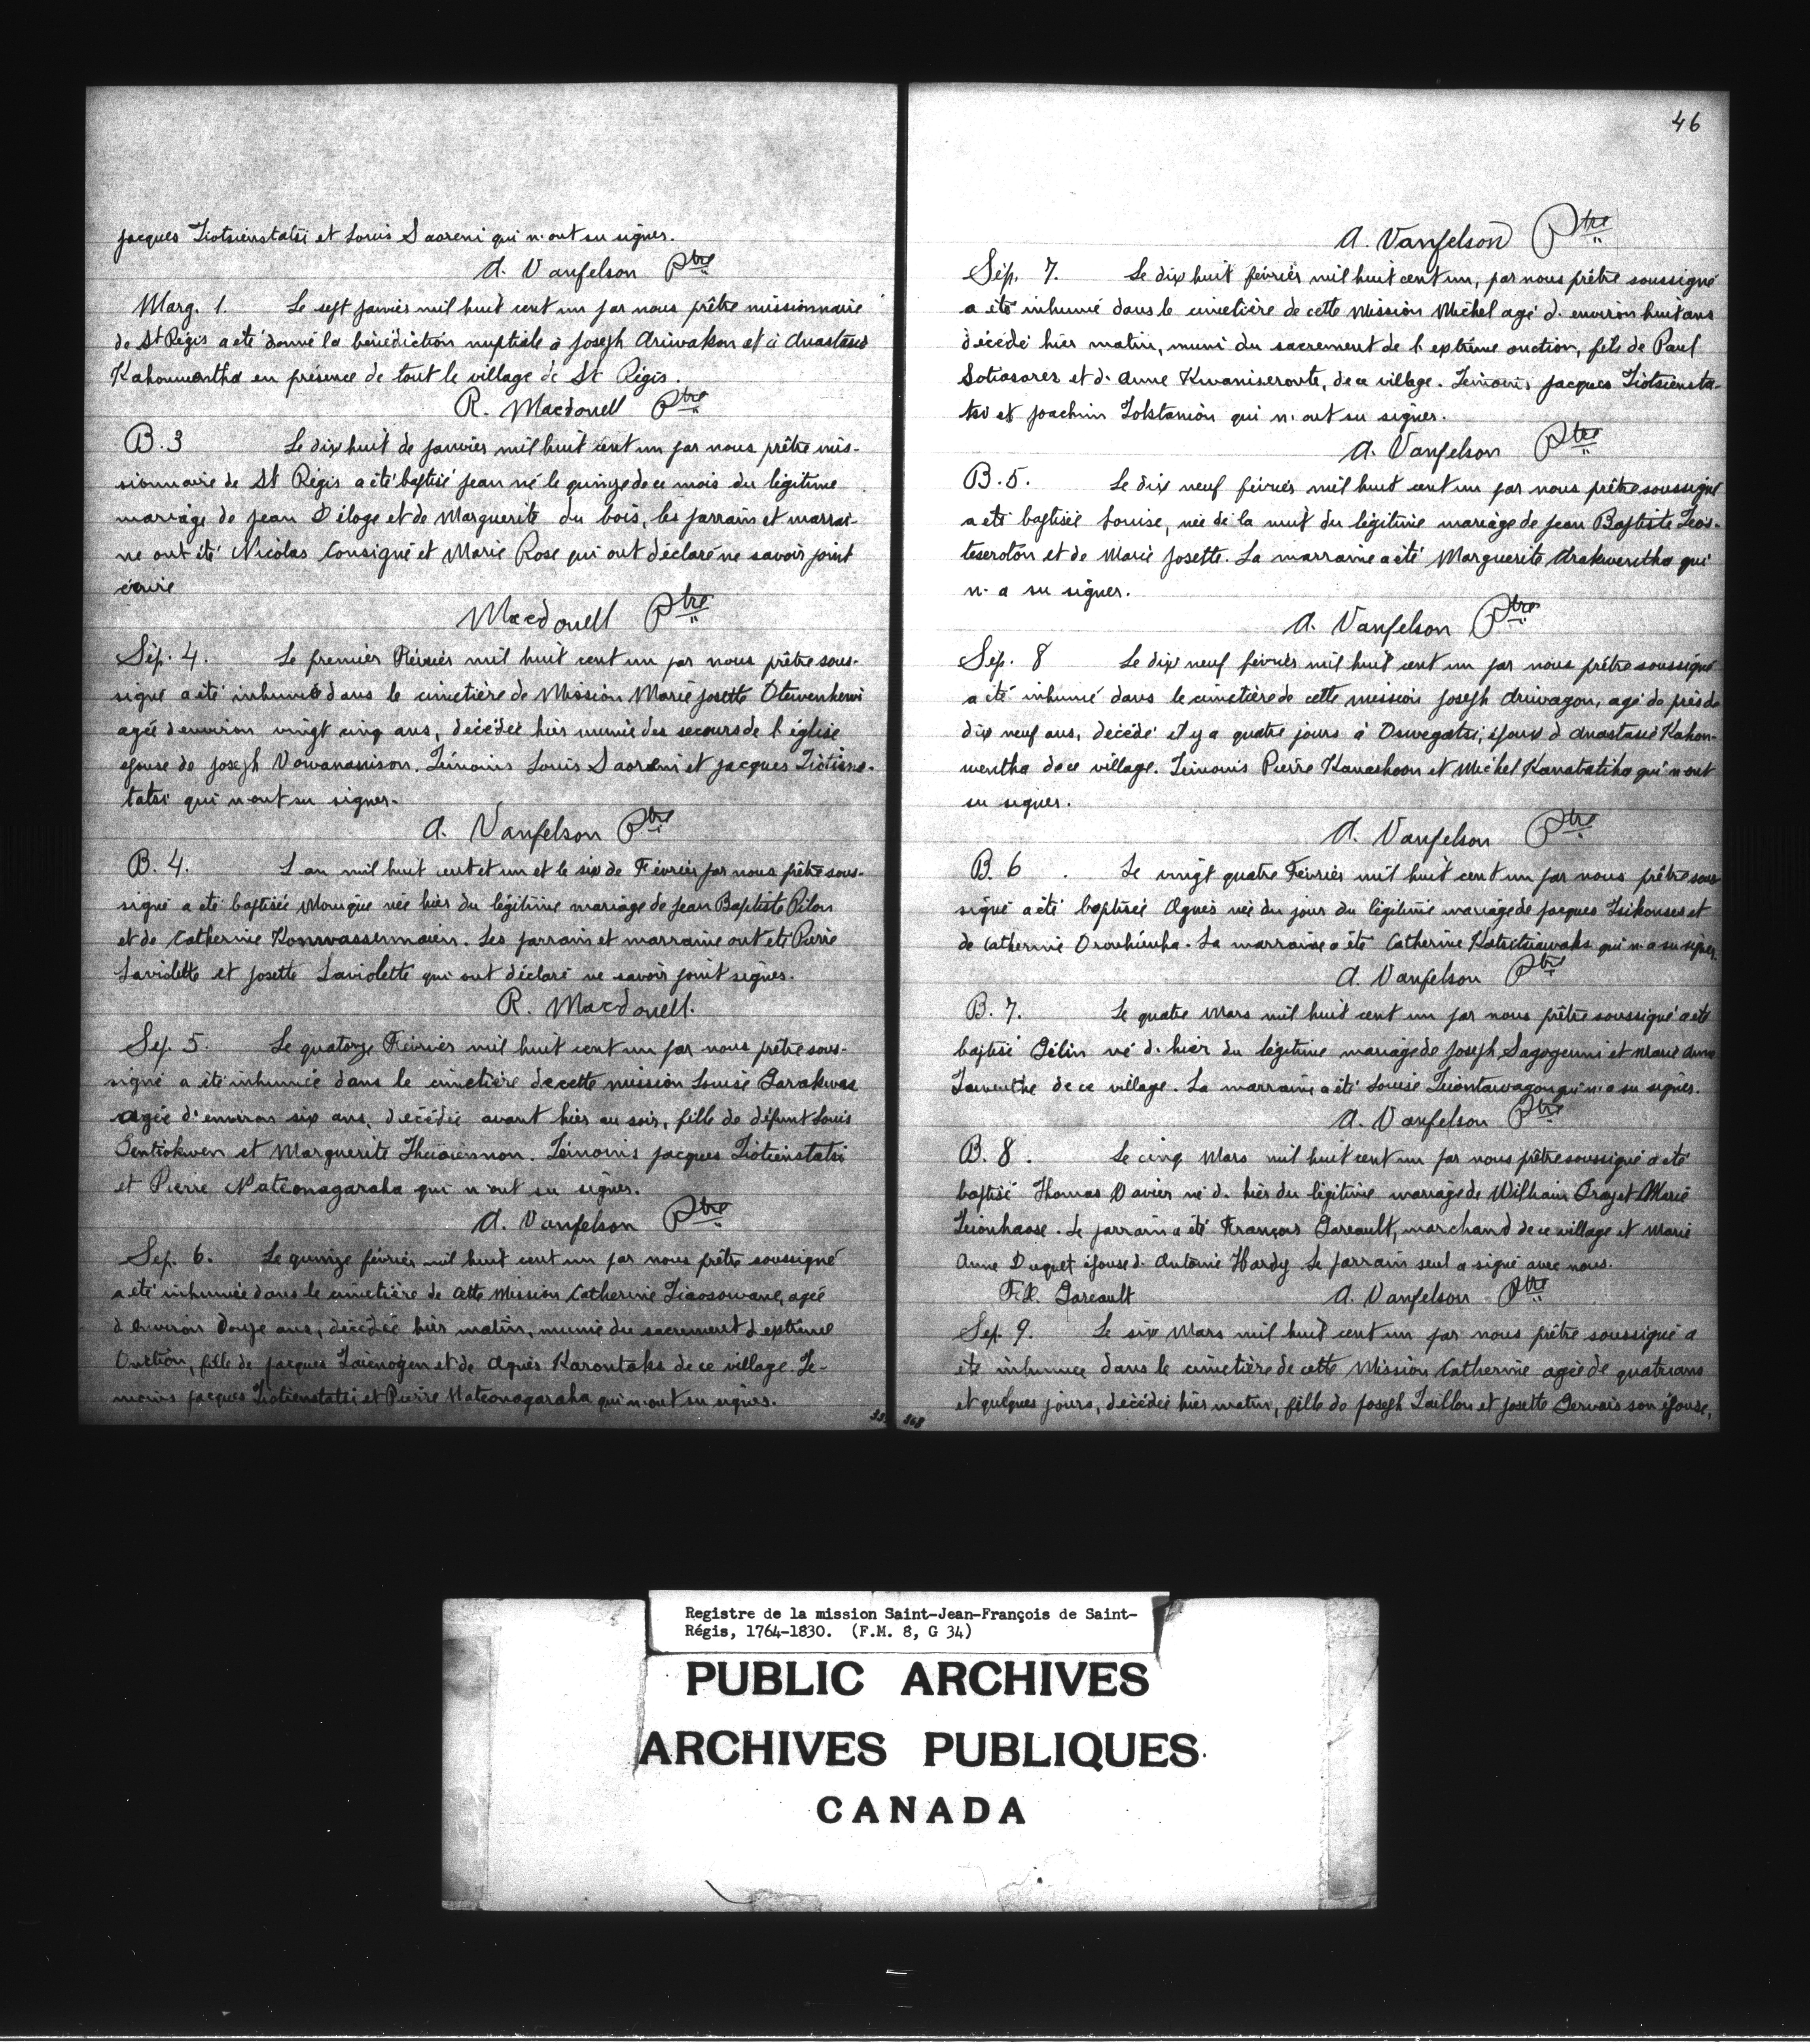 jacques Tiotsienstatsi et Louis Saoreni qui n'ont su signer.
A. Vanfelson Ptre
Marg. 1. Le sept janvier mil huit cent un par nous prêtre missionnaire
de St Régis a été donné la bénédiction nuptiale à Joseph Ariwakon et à Anastasie
Kahonwentha en présence de tout le village de St Régis.
R. Macdonell Ptre
B. 3 Le dix huit de janvier mil huit cent un par nous prêtre mis-
sionnaire de St Régis a été baptisé jean né le quinze de ce mois du légitime
mariage de jean Déloge et de Marguerite du bois, les parrain et marrai-
ne ont été Nicolas Consigné et Marie Rose qui ont déclaré ne savoir point
écrire
Macdonell Ptre
Sép. 4. Le premier Février mil huit cent un par nous prêtre sous-
signé a été inhumée dans le cimetière de Mission Marie josette Otewenhewi
agée d'environ vingt cinq ans, décédée hier munie des secours de l'église
épouse de joseph Vowanasison. Témoins Louis Saoreni et jacques Tiotiens-
tatsi qui n'ont su signer.
A. Vanfelson Ptre
B. 4. L'an mil huit cent et un et le six de Février par nous prêtre sous-
signé a été baptisée Monique née hier du légitime mariage de Jean Baptiste Pilon
et de Catherine Les parrain et marraine ont été Pierre
Laviolette et josette Laviolette qui ont déclaré ne savoir point signer.
R. Macdonell.
Sep. 5. Le quatorze Février mil huit cent un par nous prêtre sous-
signé a été inhumée dans le cimetière de cette mission Louise Garakwas
agée d'environ six ans, décédée avant hier au soir, fille de défunt Louis
Gentiokwen et Marguerite Témoins jacques Tiotienstatsi
et Pierre Nateonagaraha qui n'ont su signer.
A. Vanfelson Ptre
Sep. 6. Le quinze février mil huit cent un par nous prêtre soussigné
a été inhumée dans le cimetière de cette Mission Catherine Tiaosowane, agée
d'environ douze ans, décédée hier matin, munie du sacrement d'extrême
Onction, fille de jacques Taienogen et de Agnès Karontaks de ce village. Té-
moins jacques Tiotienstatsi et Pierre Nateonagaraha qui n'ont su signer.
46
A. Vanfelson Ptre
Sép. 7. Le dix huit février mil huit cent un, par nous prêtre soussigné
a été inhumé dans le cimetière de cette Mission Michel agé d'environ huit ans
décédé hier matin, muni du sacrement de l'extrême onction, fils de Paul
Sotiasores et d'Anne Kwaniseroute, de ce village. Témoins jacques Tiotsiensta-
tsi et joachim Tolstanion qui n'ont su signer.
A. Vanfelson Ptre
B. 5. Le dix neuf février mil huit cent un par nous prêtre soussigné
a été baptisée Louise, née de la nuit du légitime mariage de jean Baptiste Teos-
teseroton et de Marie josette. La marraine a été Marguerite Arakwentha qui
n'a su signer.
A. Vanfelson Ptre
Sep. 8 Le dix neuf février mil huit cent un par nous prêtre soussigné
a été inhumé dans le cimetière de cette mission joseph Ariwagon, agé de près de
dix neuf ans, décédé il y a quatre jours à Oswegatsi, époux d'Anastasie Kahon-
wentha de ce village. Témoins Pierre Kanashoon et Michel Kanabatiho qui n'ont
su signer.
A. Vanfelson Ptre
B. 6 . Le vingt quatre Février mil huit cent un par nous prêtre sous-
signé a été baptisée Agnès née du jour du légitime mariage de jacques Tsikouses et
de Catherine La marraine a été Catherine qui n'a su signer.
A. Vanfelson Ptre
B. 7. Le quatre Mars mil huit cent un par nous prêtre soussigné a été
baptisé Gélin né d'hier du légitime mariage de Joseph Sagogenni et Marie Anne
Tawenthe de ce village. La marraine a été Louise Teiontawagon qui n'a su signer.
A. Vanfelson Ptre
B. 8. Le cinq Mars mil huit cent un par nous prêtre soussigné a été
baptisé Thomas Davier né d'hier du légitime mariage de William Gray et Marie
Teionhaose. Le parrain a été François Gareault, marchand de ce village et Marie
Anne Duquet épouse d'Antoine Hardy. Le parrain seul a signé avec nous.
Fr. Gareault A. Vanfelson Ptre
Sep. 9. Le six Mars mil huit cent un par nous prêtre soussigné a
été inhumée dans le cimetière de cette Mission Catherine agée de quatre ans
et quelques jours, décédée hier matin, fille de joseph Taillon et josette Gervais son épouse,
Registre de la mission Saint-Jean-François de Saint-
Régis, 1764-1830. (F.M. 8, G 34)
PUBLIC ARCHIVES
ARCHIVES PUBLIQUES
CANADA